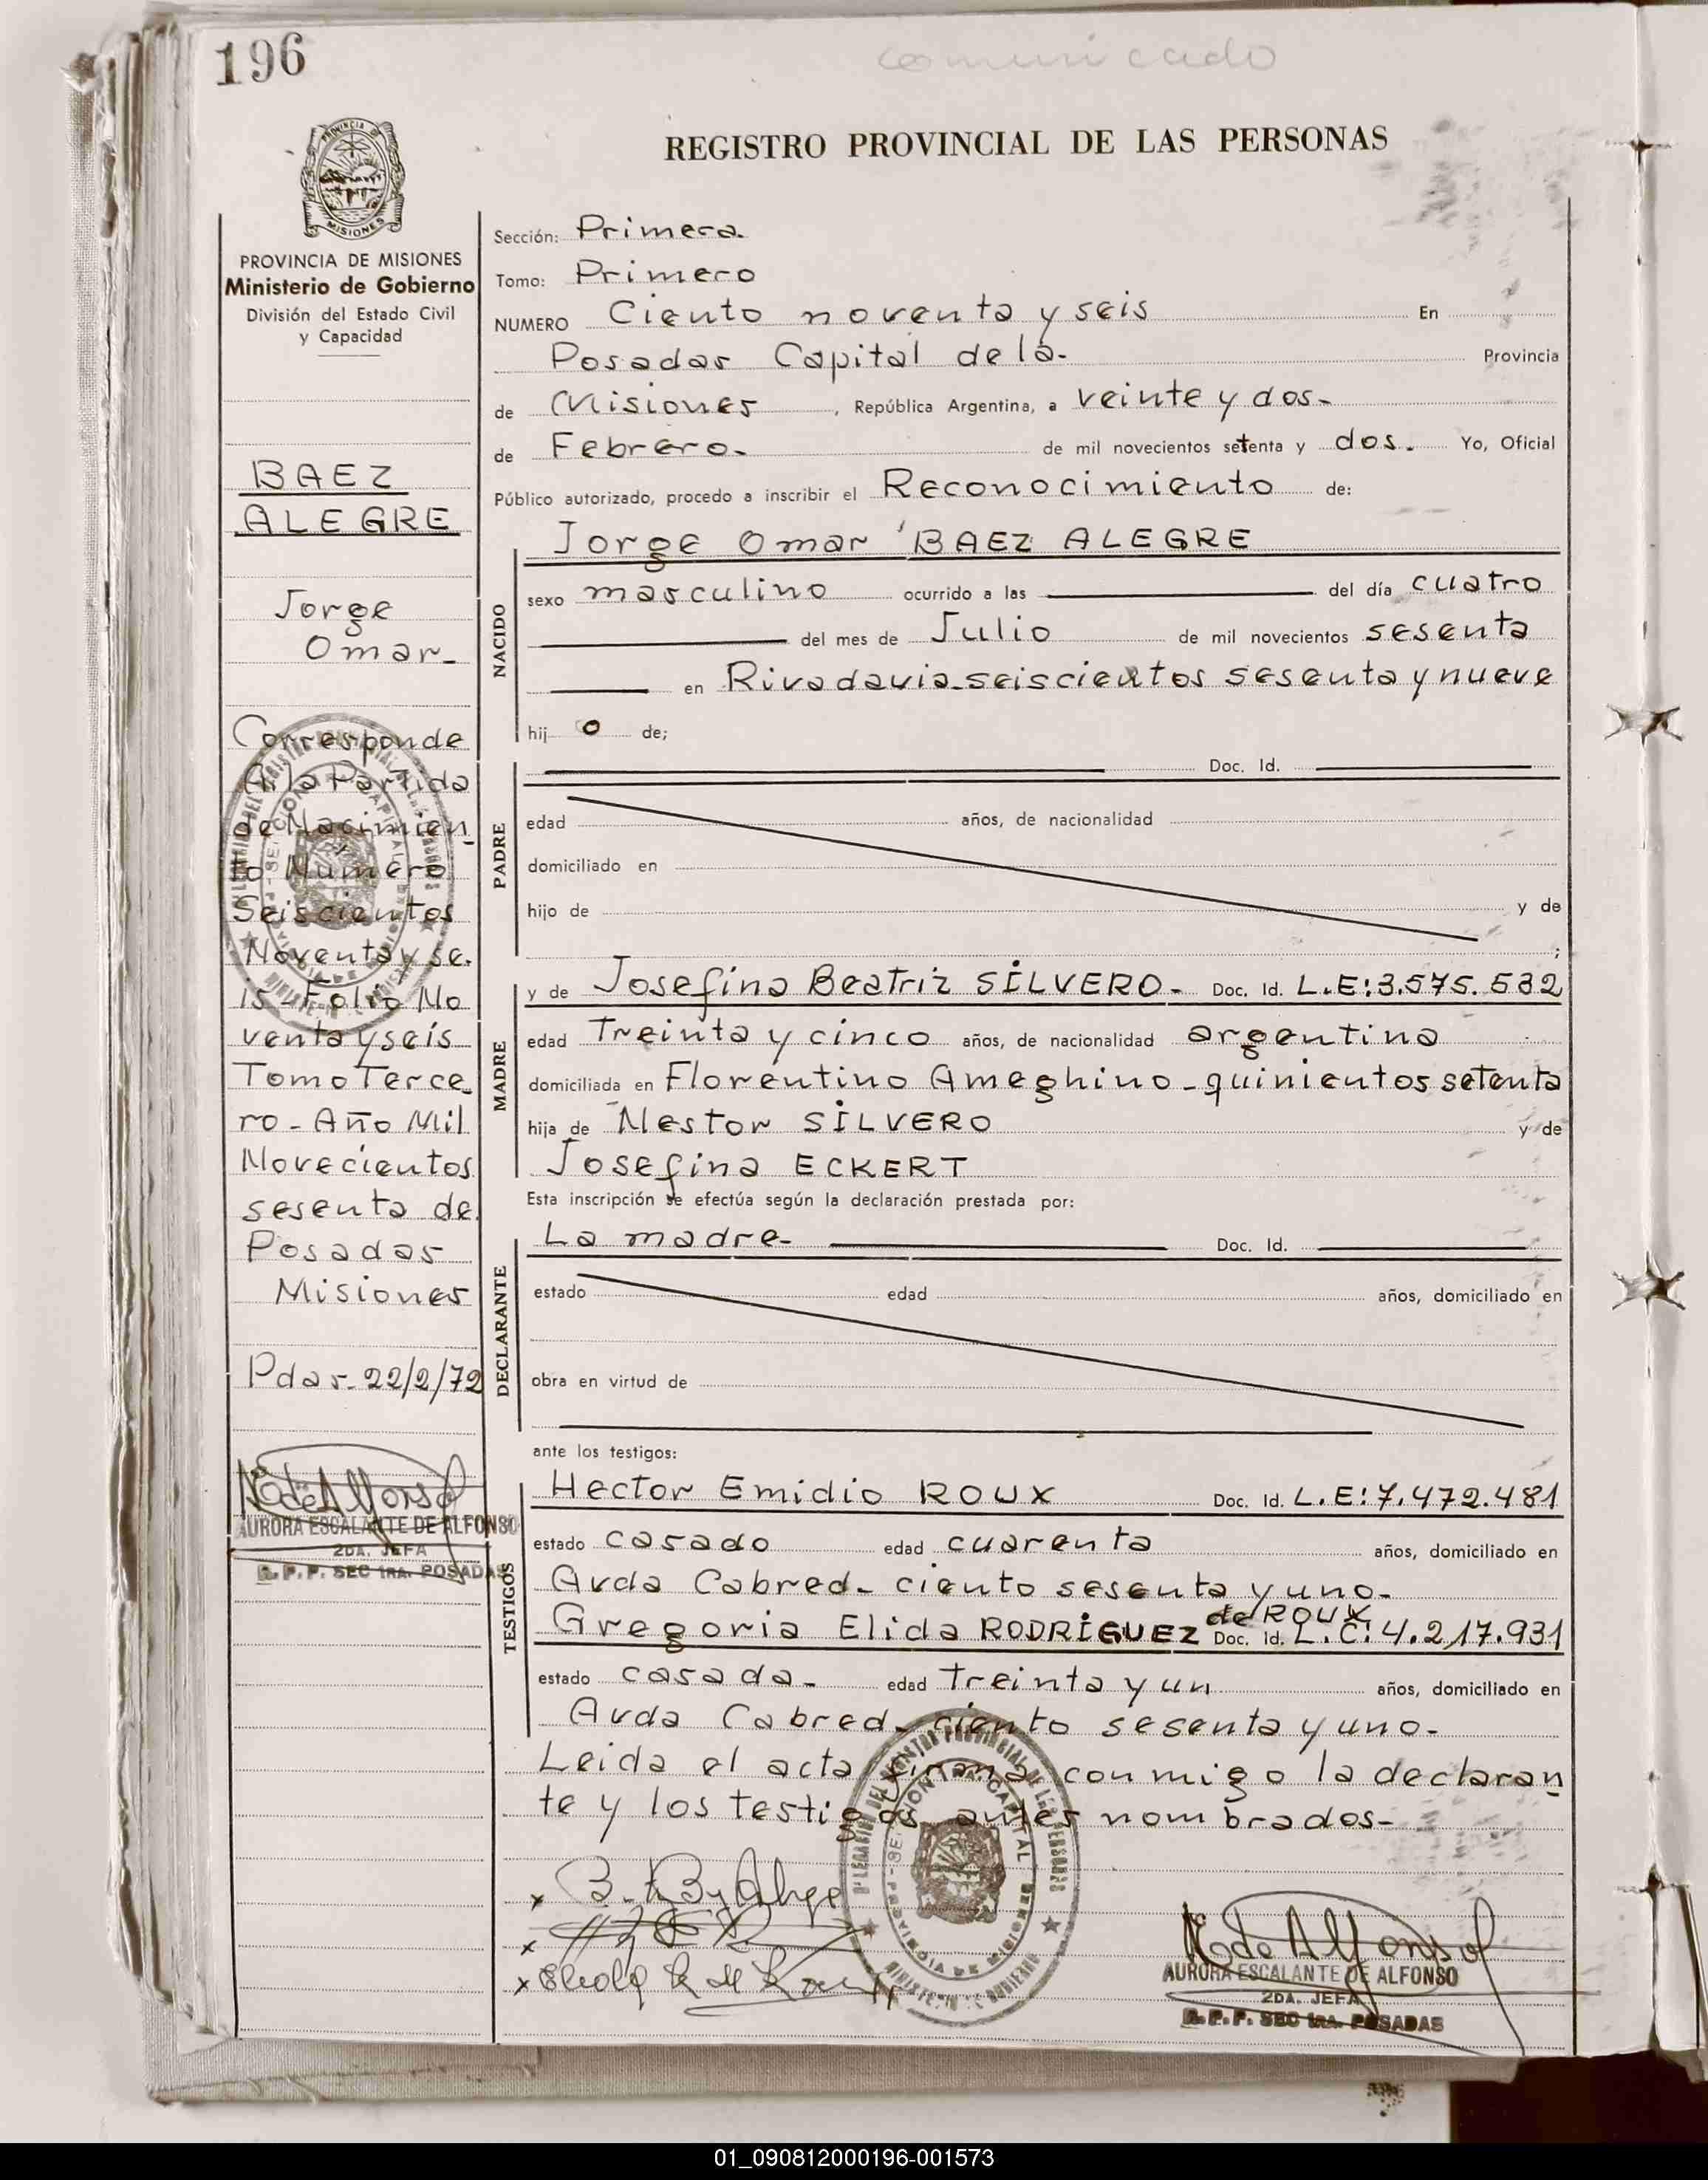 196
comunicado
REGISTRO PROVINCIAL DE LAS PERSONAS
PROVINCIA DE
MISIONES
PROVINCIA DE MISIONES
Ministerio de Gobierno
División del Estado Civil
y Capacidad
BAEZ
ALEGRE
Jorge
Omar-
Corresponde
A la Partida
de Nacimien
to Número
Seiscientos
Noventa y se.
is - Folio No
venta y seis
Tomo Terce
ro - Año Mil
Novecientos
sesenta de
Posadas
Misiones
Pdas- 22/2/72
AURORA ESCALANTE DE ALFONSO
2DA. JEFA
R.P.P. SEC 1RA. POSADAS
Sección: Primera.
Tomo: Primero
NUMERO Ciento noventa y seis En
Posadas Capital de la- Provincia
de Misiones, República Argentina, a veinte y dos-
de Febrero. de mil novecientos setenta y dos. Yo, Oficial
Público autorizado, procedo a inscribir el Reconocimiento de:
NACIDO
Jorge Omar BAEZ ALEGRE
sexo masculino ocurrido a las del día cuatro
del mes de Julio de mil novecientos sesenta
en Rivadavia-seiscientos sesenta y nueve
hij o de;
PADRE
Doc. Id.
edad años, de nacionalidad
domiciliado en
hijo de y de
;
MADRE
y de Josefina Beatriz SILVERO- Doc. Id. L.E:3.575.532
edad Treinta y cinco años, de nacionalidad argentina
domiciliada en Florentino Ameghino-quinientos setenta
hija de Nestor SILVERO y de
Josefina ECKERT
Esta inscripción se efectúa según la declaración prestada por:
DECLARANTE
La madre- Doc. Id.
estado edad años, domiciliado en
obra en virtud de
ante los testigos:
TESTIGOS
Hector Emidio ROUX Doc. Id. L.E:7.472.481
estado casado edad cuarenta años, domiciliado en
Avda Cabred- ciento sesenta y uno-
de ROUX
Gregoria Elida RODRIGUEZ Doc. Id. L.C:4.217.931
estado casada- edad Treinta y un años, domiciliado en
Avda Cabred- ciento sesenta y uno-
Leida el acta firma conmigo la declaran
te y los testigos antes nombrados-
AURORA ESCALANTE DE ALFONSO
2DA. JEFA
R.P.P. SEC 1RA. POSADAS
01_090812000196-001573